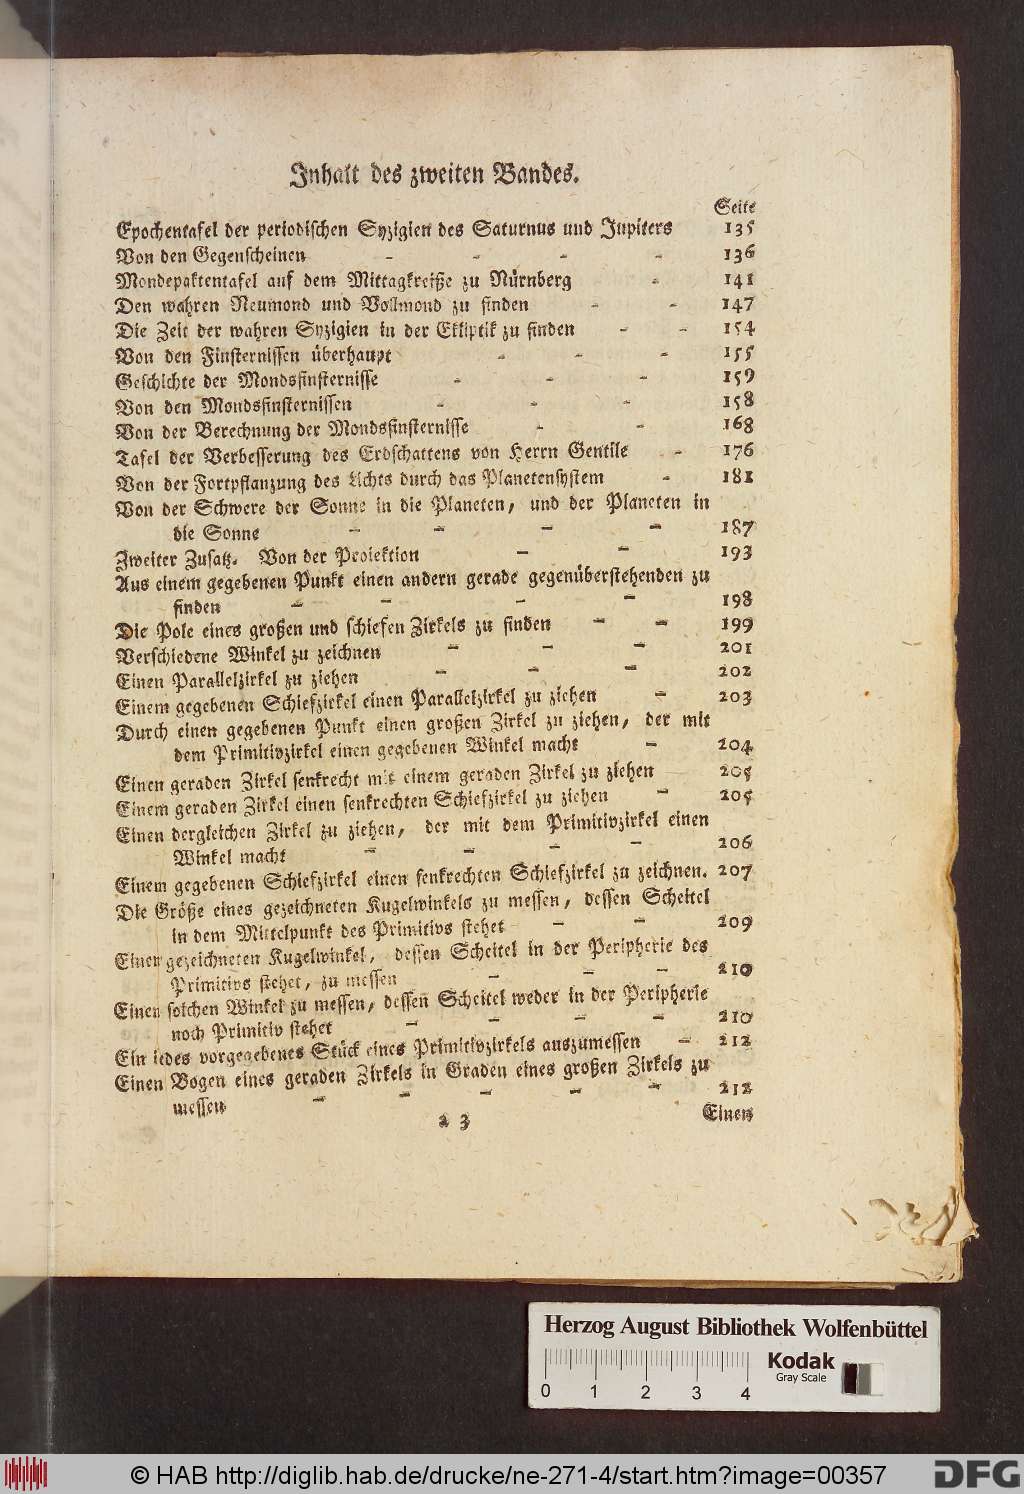 Inhalt des zweiten Bandes.
Seite
Epochentafel der periodischen Syzigien des Saturnus und Jupiters 135
Von den Gegenscheinen - - - - 136
Mondepaktentafel auf dem Mittagkreiße zu Nürnberg - 141
Den wahren Neumond und Vollmond zu finden - - 147
Die Zeit der wahren Syzigien in der Ekliptik zu finden - - 154
Von den Finsternissen überhaupt - - - 155
Geschichte der Mondsfinsternisse - - - 159
Von den Mondsfinsternissen - - - 158
Von der Berechnung der Mondsfinsternisse - - 168
Tafel der Verbesserung des Erdschattens von Herrn Gentile - 176
Von der Fortpflanzung des Lichts durch das Planetensystem - 181
Von der Schwere der Sonne in die Planeten, und der Planeten in
die Sonne - - - - 187
Zweiter Zusatz. Von der Projektion - - 193
Aus einem gegebenen Punkt einen andern gerade gegenüberstehenden zu
finden - - - - 198
Die Pole eines großen und schiefen Zirkels zu finden - - 199
Verschiedene Winkel zu zeichnen - - - 201
Einen Parallelzirkel zu ziehen - - - 202
Einem gegebenen Schiefzirkel einen Parallelzirkel zu ziehen - 203
Durch einen gegebenen Punkt einen großen Zirkel zu ziehen, der mit
dem Primitivzirkel einen gegebenen Winkel macht - 204
Einen geraden Zirkel senkrecht mit einem geraden Zirkel zu ziehen 205
Einem geraden Zirkel einen senkrechten Schiefzirkel zu ziehen - 205
Einen dergleichen Zirkel zu ziehen, der mit dem Primitivzirkel einen
Winkel macht - - - - 206
Einem gegebenen Schiefzirkel einen senkrechten Schiefzirkel zu zeichnen. 207
Die Größe eines gezeichneten Kugelwinkels zu messen, dessen Scheitel
in dem Mittelpunkt des Primitivs stehet - - 209
Einen gezeichneten Kugelwinkel, dessen Scheitel in der Peripherie des
Primitivs stehet, zu messen - - - 210
Einen solchen Winkel zu messen, dessen Scheitel weder in der Peripherie
noch Primitiv stehet - - - - 210
Ein iedes vorgegebenes Stück eines Primitivzirkels auszumessen - 212
Einen Bogen eines geraden Zirkels in Graden eines großen Zirkels zu
messen - - - - - 212
a 3 Einen
Herzog August Bibliothek Wolfenbüttel
Kodak
Gray Scale
0 1 2 3 4
© HAB http://diglib.hab.de/drucke/ne-271-4/start.htm?image=00357
DFG